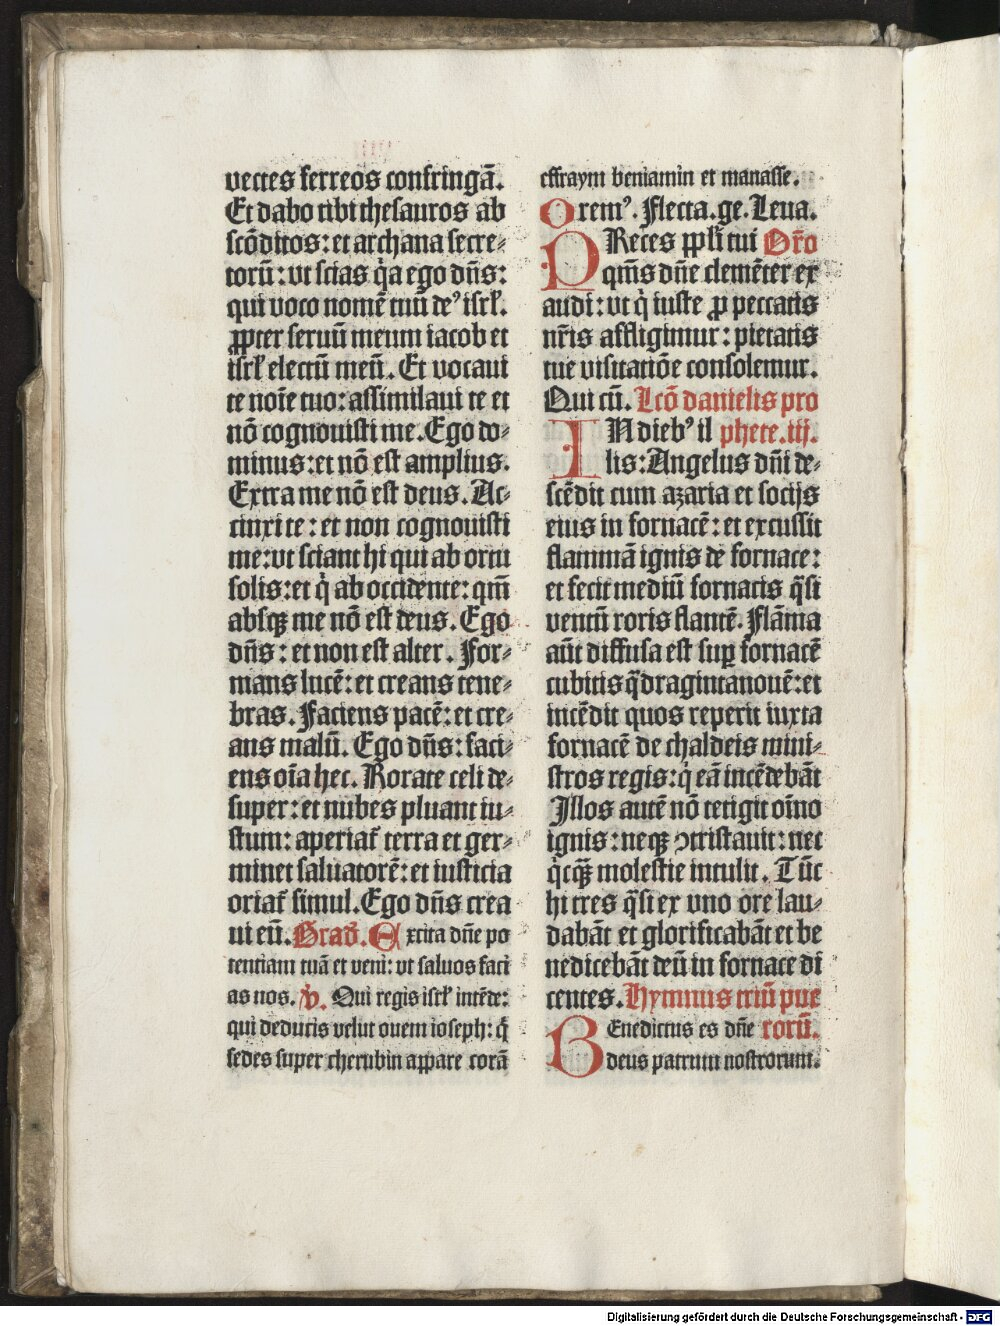 vectes ferreos confringā.
Et dabo tibi thesauros ab
scōditos: et archana secre-
torū: ut scias q̇a ego dn̄s:
qui voco nomē tuū deꝰ isrł.
ꝓpter seruū meum iacob et
isrł electū meū. Et vocaui
te noīe tuo: assimilaui te et
nō cognouisti me. Ego do-
minus: et nō est amplius.
Extra me nō est deus. Ac-
cinxi te: et non cognouisti
me: ut sciant hi qui ab ortu
solis: et q̇ ab occidente: qm̄
absqꝫ me nō est deus. Ego
dn̄s: et non est alter. For-
mans lucē: et creans tene-
bras. Faciens pacē: et cre-
ans malū. Ego dn̄s: faci-
ens oīa hec. Rorate celi de-
super: et nubes pluant iu-
stum: aperiat᷑ terra et ger-
minet saluatorē: et iusticia
oriat᷑ simul. Ego dn̄s crea
ui eū. Grad̄. Excita dn̄e po
tentiam tuā et veni: ut saluos faci
as nos. v̄. Qui regis isrł intēde:
qui deducis velut ouem ioseph: q̄
sedes super cherubin appare corā
effraym beniamin et manasse.
Oremꝰ. Flecta. ge. Leua.
PReces ppłi tui Or̄o
qm̄s dn̄e clemēter ex
audi: ut q̇ iuste ꝓ peccatis
nr̄is affligimur: pietatis
tue visitatiōe consolemur.
Qui cū. Lcō danielis pro
IN diebꝰ il phete. iij.
lis: Angelus dn̄i de-
scēdit cum azaria et socijs
eius in fornacē: et excussit
flammā ignis de fornace:
et fecit mediū fornacis q̄si
ventū roris flantē. Flāma
aūt diffusa est suꝑ fornacē
cubitis q̄draginta nouē: et
incēdit quos reperit iuxta
fornacē de chaldeis mini-
stros regis: q̇ eā incēdebāt
Illos autē nō tetigit oīno
ignis: neqꝫ ↄtristauit: nec
q̇cqꝫ̄ molestie intulit. Tūc
hi tres q̄si ex uno ore lau-
dabāt et glorificabāt et be
nedicebāt deū in fornace di
centes. Hymnus triū pue
BEnedictus es dn̄e rorū.
deus patrum nostrorum.
Digitalisierung gefördert durch die Deutsche Forschungsgemeinschaft - DFG